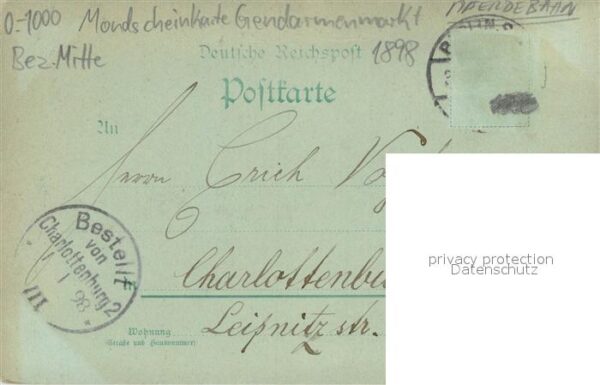 0-1000 Mondscheinkarte Gendarmenmarkt PFERDEBAHN
Bez. Mitte
1898
Deutsche Reichspost
Postkarte
BERLIN
An
Herrn Erich
Bestellt
von
Charlottenburg 2
1 98
III
Charlottenbu
Leipnitzstr.
Wohnung
(Straße und Hausnummer)
privacy protection
Datenschutz